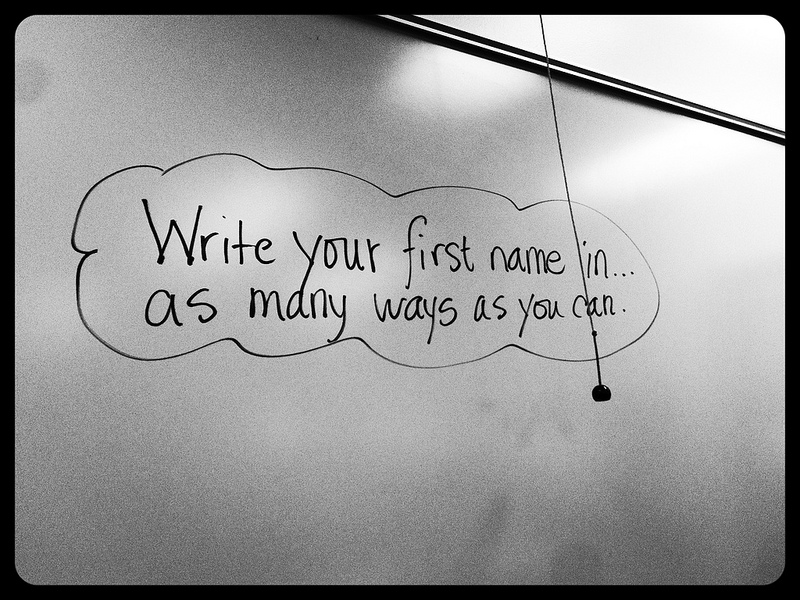 Write your first name in...
as many ways as you can.